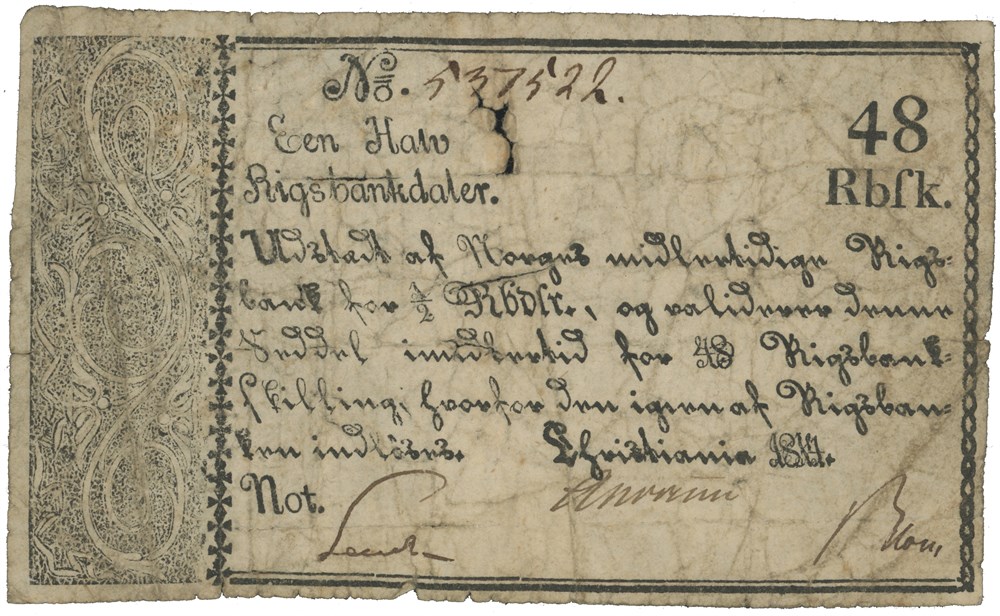 No. 537522.
48
Een Halv
Rbſk.
Rigsbankdaler.
Udstædt af Norges midlertidige Rigs-
bank for 1/2 Rbdlr., og validerer denne
Seddel imidlertid for 48 Rigsbank-
skilling, hvorfor den igien af Rigsban-
ken indløses. Christiania 1814.
Not.